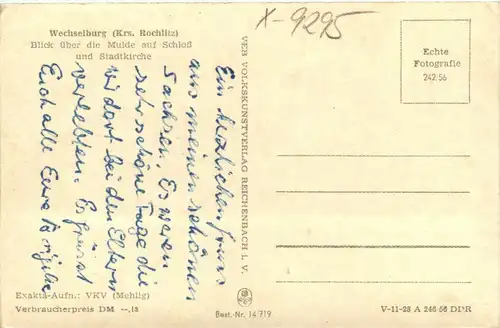 Wechselburg (Krs. Rochlitz)
Blick über die Mulde auf Schloß
und Stadtkirche
X-9295
Echte
Fotografie
242/56
Ein herzlichen Gruss
aus meinen schönen
Sachsen. Es waren
sehr schöne Tage die
wir dort bei den Eltern
verlebten. Es grüsst
Euch alle Eure Brigitte
VEB VOLKSKUNSTVERLAG REICHENBACH I. V.
Exakta-Aufn.: VKV (Mehlig)
Verbraucherpreis DM —,18
Best.-Nr. 14 719
V-11-28 A 246 56 DDR